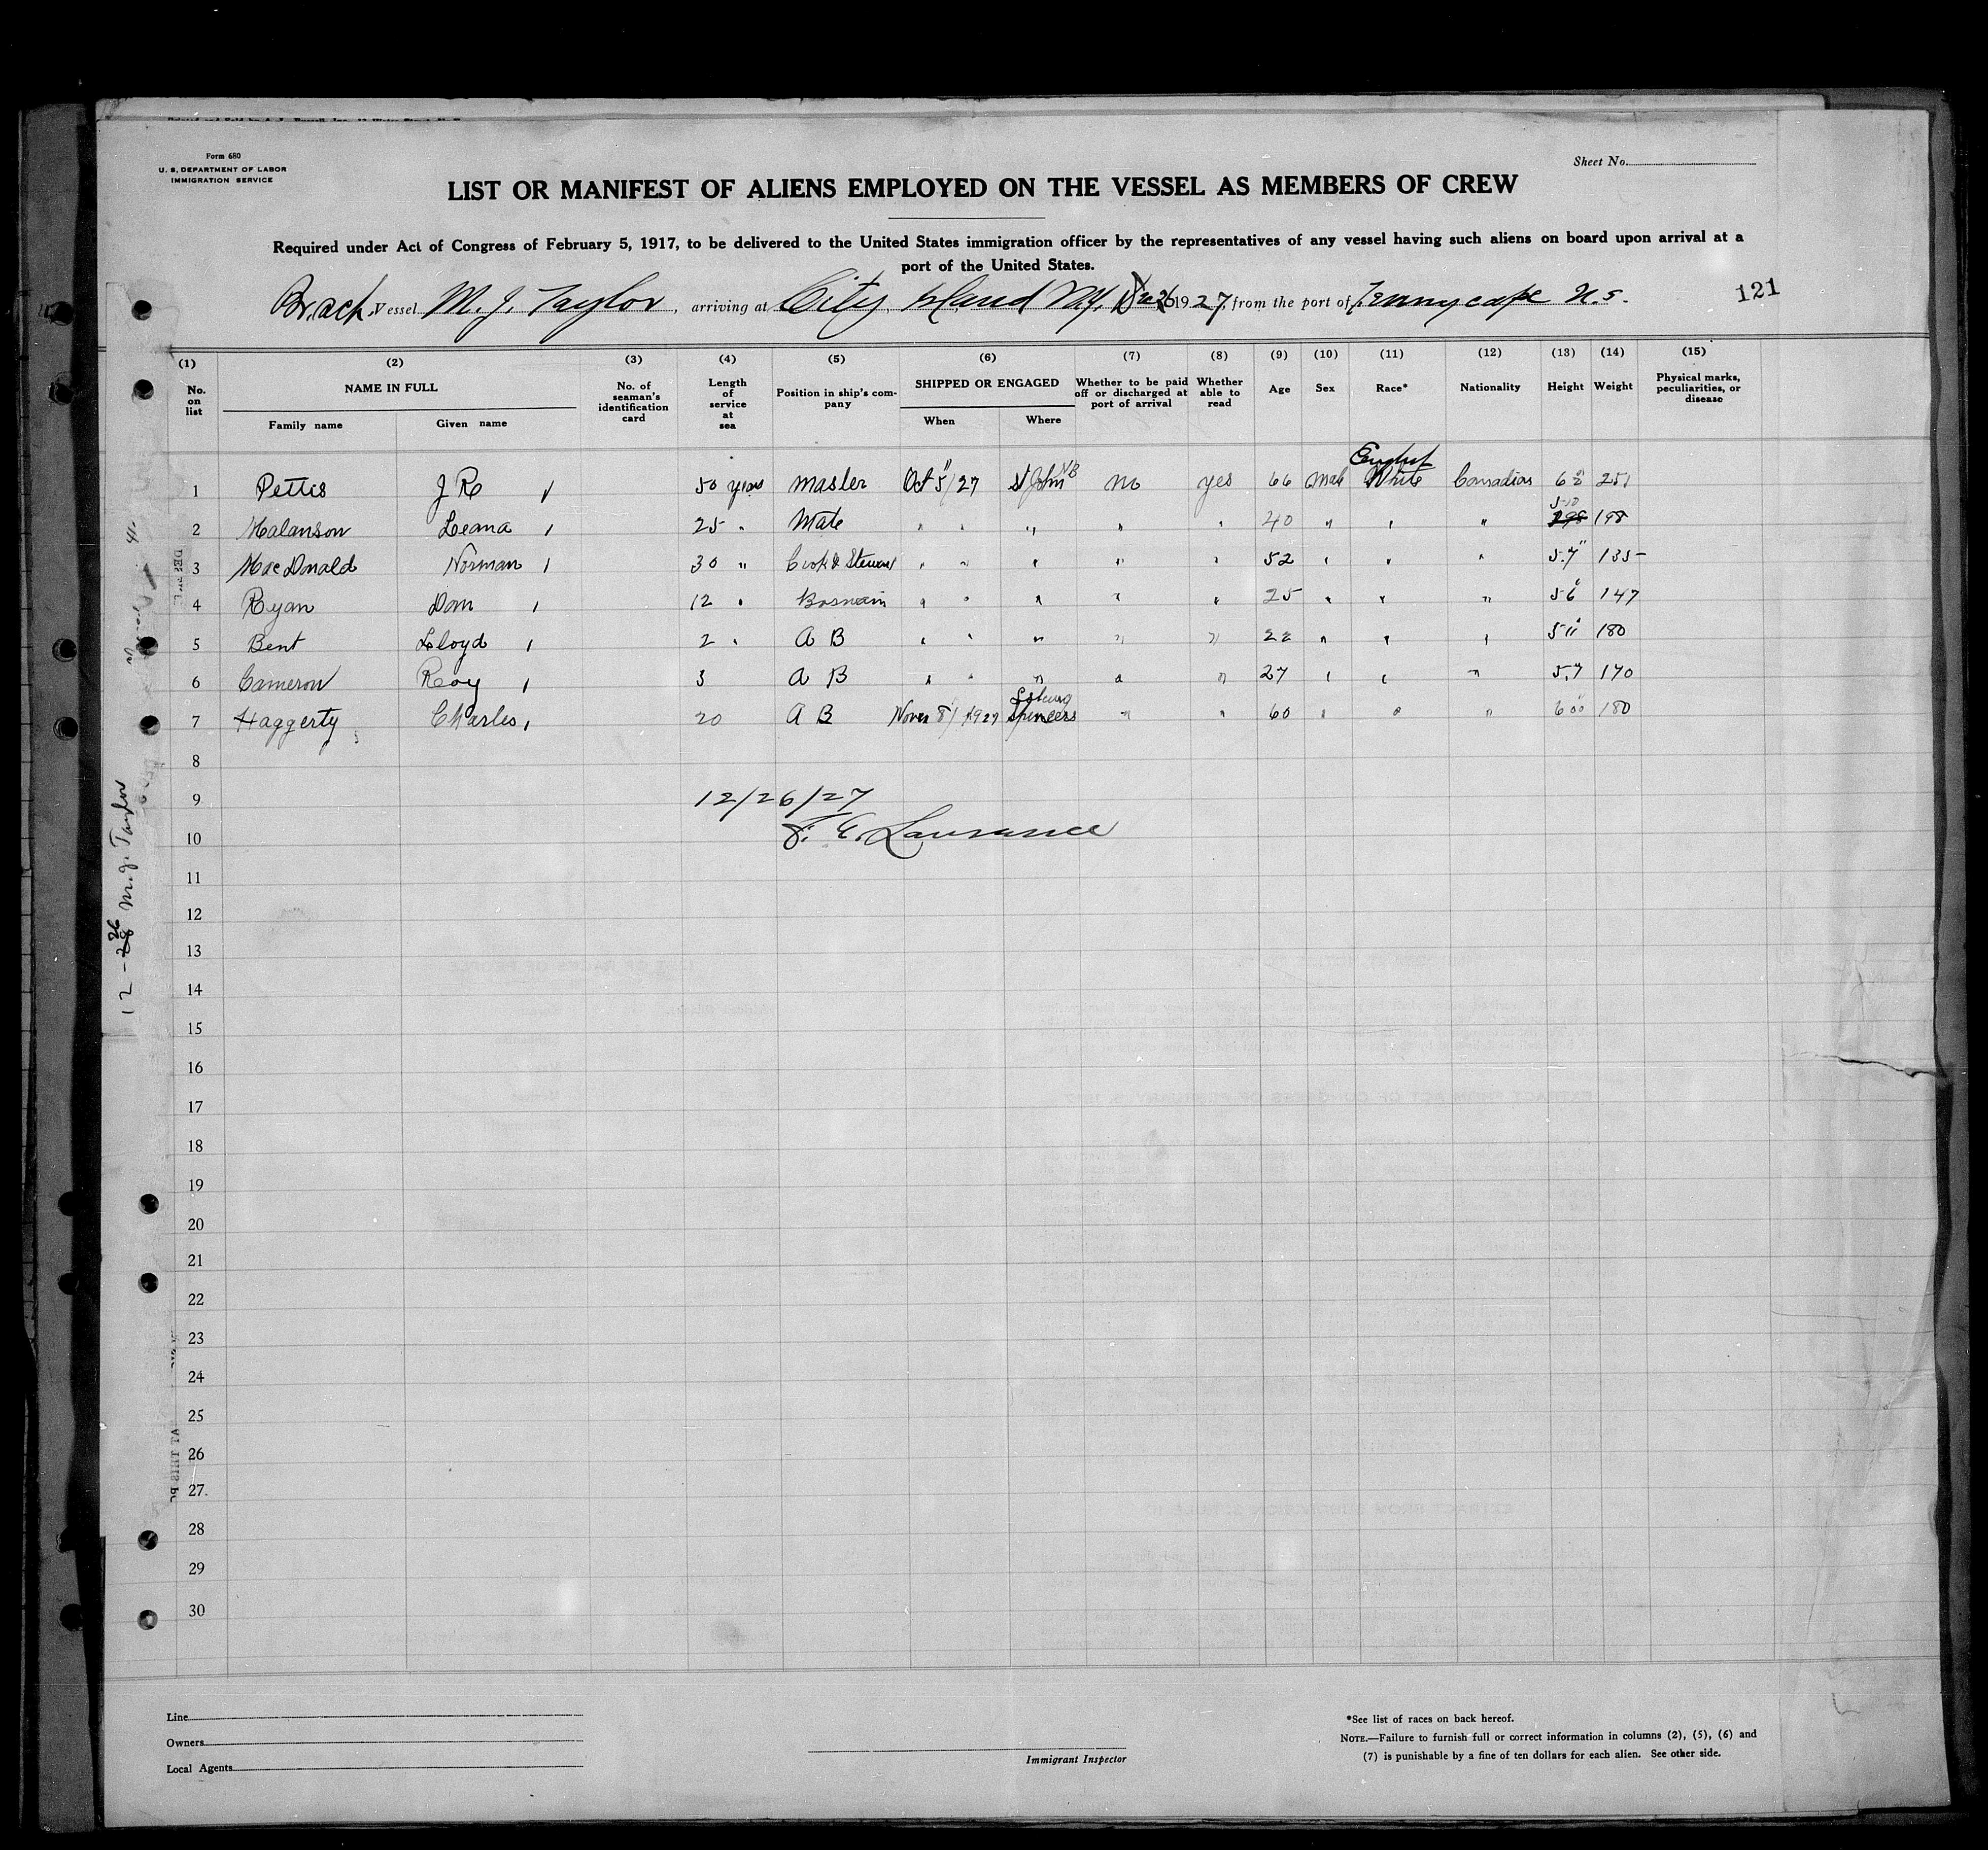 Form 680
U. S. DEPARTMENT OF LABOR
IMMIGRATION SERVICE
Sheet No.
LIST OR MANIFEST OF ALIENS EMPLOYED ON THE VESSEL AS MEMBERS OF CREW
Required under Act of Congress of February 5, 1917, to be delivered to the United States immigration officer by the representatives of any vessel having such aliens on board upon arrival at a
port of the United States.
Vessel M. J. Taylor, arriving at City Island N.Y. Dec 26 1927, from the port of Tennycape N.S.
121
(1) (2) (3) (4) (5) (6) (7) (8) (9) (10) (11) (12) (13) (14) (15)
No. on list
NAME IN FULL
Family name Given name
No. of seaman's identification card
Length of service at sea
Position in ship's company
SHIPPED OR ENGAGED
When Where
Whether to be paid off or discharged at port of arrival
Whether able to read
Age Sex Race* Nationality Height Weight
Physical marks, peculiarities, or disease
English
1 Pettis J R 50 years Master Oct 5/27 St John NB no yes 66 Male White Canadian 6 2 251
5-10
2 Malanson Leana 25 " Mate " " " " " 40 " " " 198 198
3 MacDonald Norman 30 " Cook & Steward " " " " " 52 " " " 5.7" 135
4 Ryan Dom 12 " Bosnain " " " " " 25 " " " 5 6 147
5 Bent Lloyd 2 " A B " " " " " 22 " " " 5 11 180
6 Cameron Roy 3 A B " " " " " 27 " " " 5.7 170
7 Haggerty Charles 20 A B Nover 8/1927 Spencers " " 60 " " " 6 00 180
8
9
12/26/27
10
F. E. Lawrence
11
12
13
14
15
16
17
18
19
20
21
22
23
24
25
26
27
28
29
30
12-26 M. J. Taylor
Line
Owners
Local Agents
Immigrant Inspector
*See list of races on back hereof.
NOTE.—Failure to furnish full or correct information in columns (2), (5), (6) and
(7) is punishable by a fine of ten dollars for each alien. See other side.